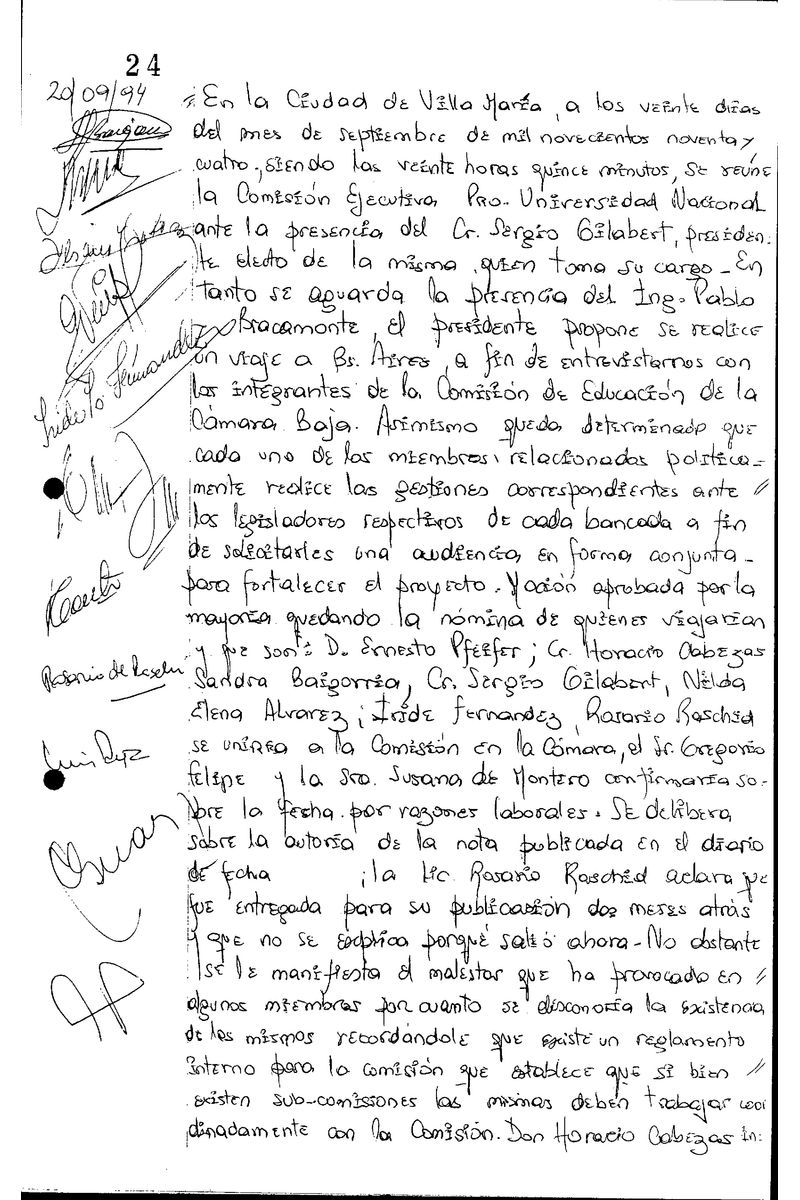 24
20/09/94
En la Ciudad de Villa María, a los veinte días
del mes de septiembre de mil novecientos noventa y
cuatro, siendo las veinte horas quince minutos, se reúne
la Comisión Ejecutiva Pro-Universidad Nacional
ante la presencia del Cr. Sergio Gilabert, presiden-
te electo de la misma, quien toma su cargo - En
tanto se aguarda la presencia del Ing. Pablo
Bracamonte, el presidente propone se realice
un viaje a Bs. Aires, a fin de entrevistarnos con
los integrantes de la Comisión de Educación de la
Cámara Baja. Asimismo queda determinado que
cada uno de los miembros relacionados política-
mente realice las gestiones correspondientes ante //
los legisladores respectivos de cada bancada a fin
de solicitarles una audiencia en forma conjunta -
para fortalecer el proyecto. Moción aprobada por la
mayoría quedando la nómina de quienes viajarían
y que son: D. Ernesto Pfeifer; Cr. Horacio Cabezas
Sandra Baigorria, Cr. Sergio Gilabert, Nilda
Elena Alvarez; Iride Fernandez, Rosario Raschid
se uniría a la Comisión en la Cámara, el Sr. Gregorio
Felipe y la Sra. Susana de Montero confirmaría so-
bre la fecha por razones laborales. Se delibera
sobre la autoría de la nota publicada en el diario
de fecha ; la Lic. Rosario Raschid aclara que
fue entregada para su publicación dos meses atrás
y que no se explica porqué salió ahora - No obstante
se le manifiesta el malestar que ha provocado en //
algunos miembros por cuanto se desconocía la existencia
de los mismos recordándole que existe un reglamento
interno para la comisión que establece que si bien //
existen sub-comisiones las mismas deben trabajar coor
dinadamente con la Comisión. Don Horacio Cabezas in:
Iride Fernandez
Rosario de Raschid
Luis Ruiz
Oscar